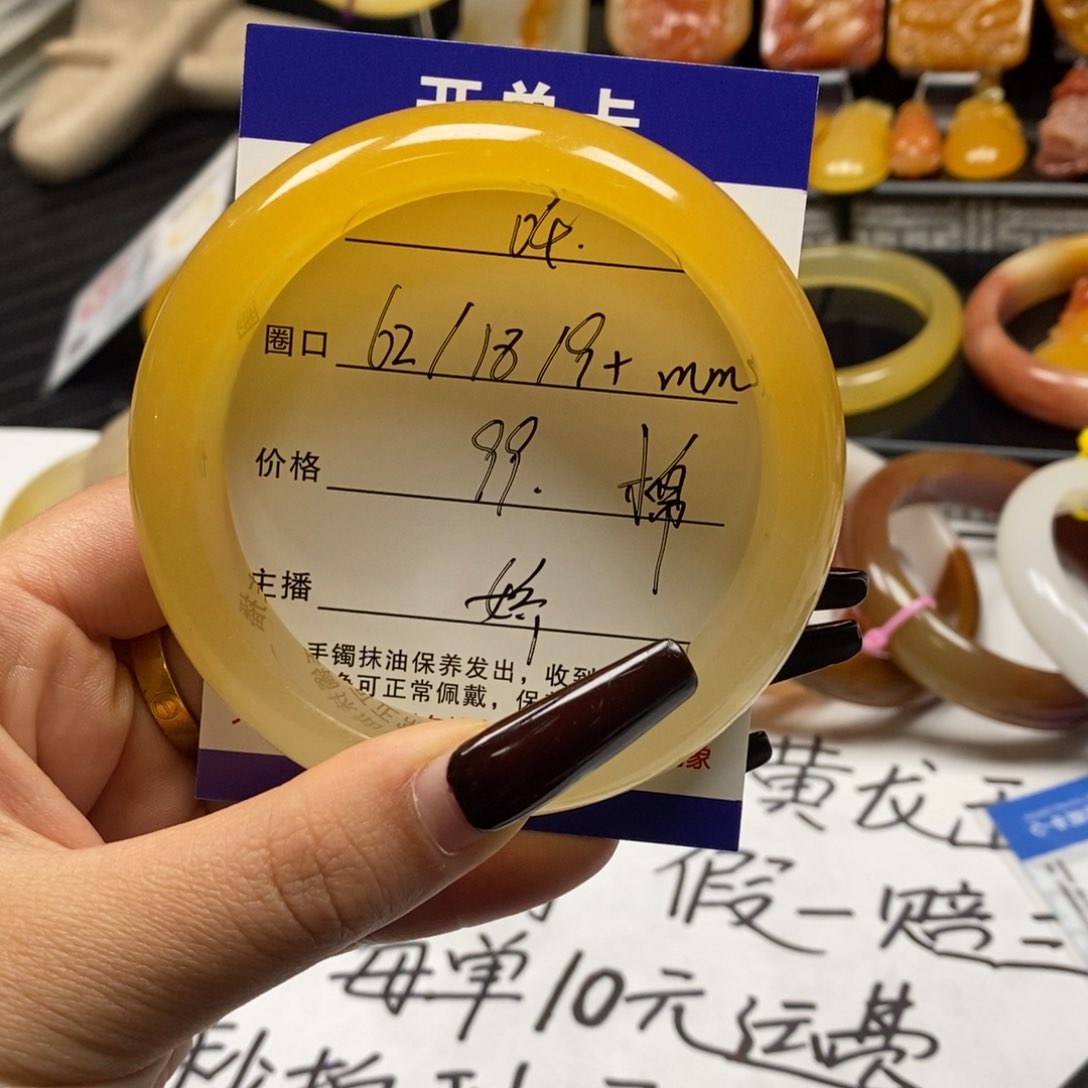 开单卡
04.
圈口 62/18 19+ mm
价格 99. 棉
主播 婷
手镯抹油保养发出，收到
可正常佩戴，保
象
黄龙玉
假一赔三
每单10元运费